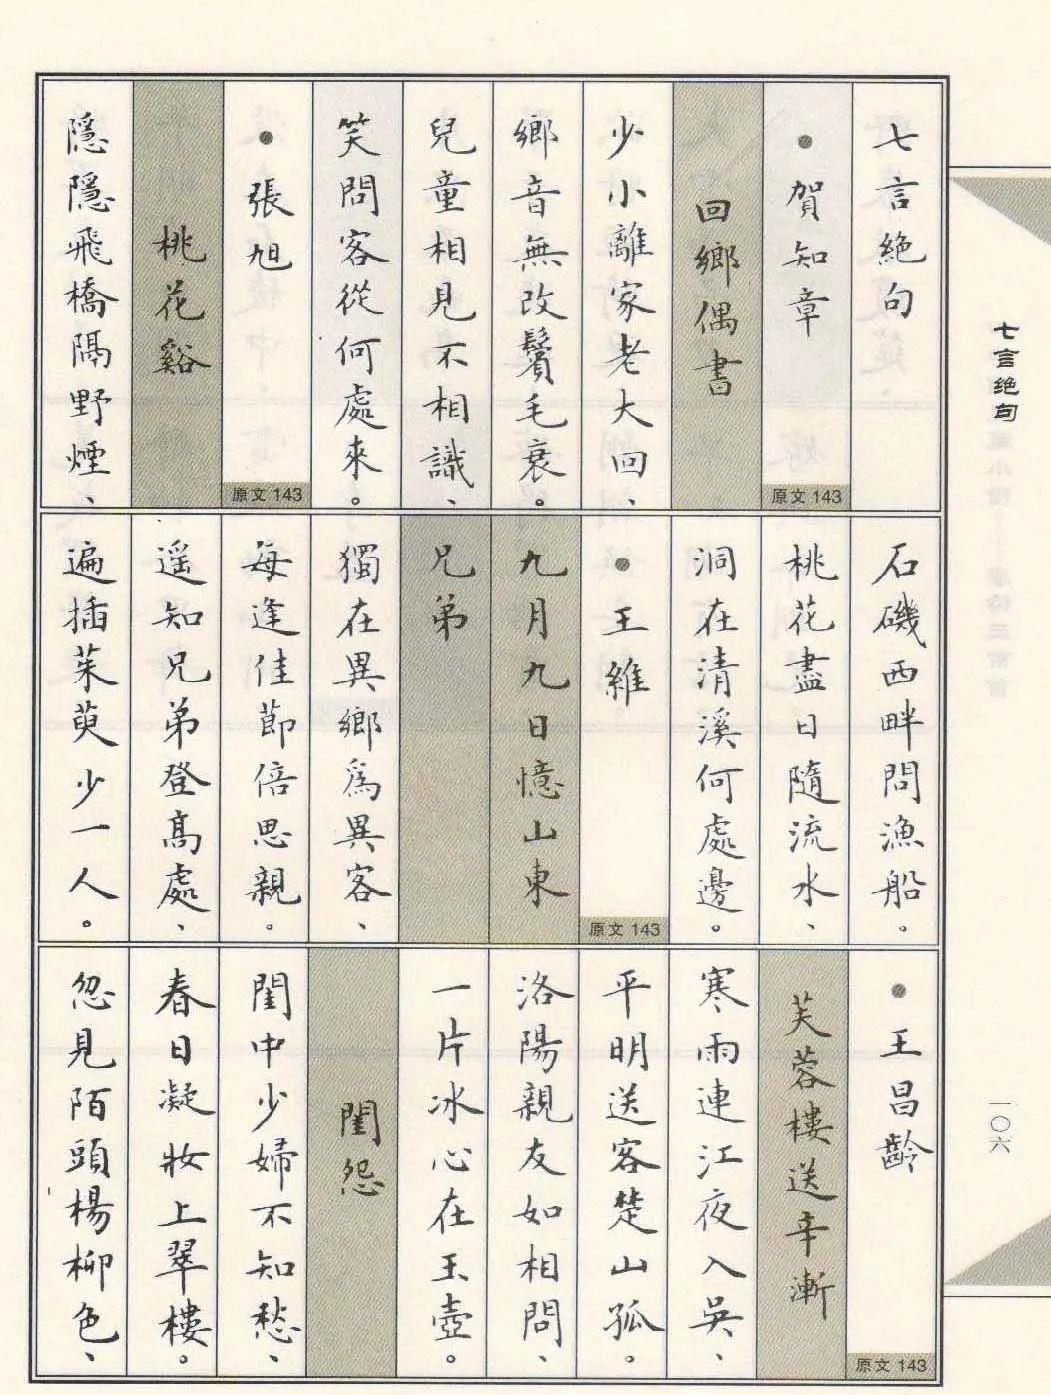 七言絕句
●賀知章
原文143
回鄉偶書
少小離家老大回、
鄉音無改鬢毛衰。
兒童相見不相識、
笑問客從何處來。
●張旭
原文143
桃花谿
隱隱飛橋隔野煙、
石磯西畔問漁船。
桃花盡日隨流水、
洞在清溪何處邊。
●王維
原文143
九月九日憶山東
兄弟
獨在異鄉為異客、
每逢佳節倍思親。
遥知兄弟登高處、
遍插茱萸少一人。
●王昌齡
原文143
芙蓉樓送辛漸
寒雨連江夜入吳、
平明送客楚山孤。
洛陽親友如相問、
一片冰心在玉壺。
閨怨
閨中少婦不知愁、
春日凝妝上翠樓。
忽見陌頭楊柳色、
七言绝句
一〇六